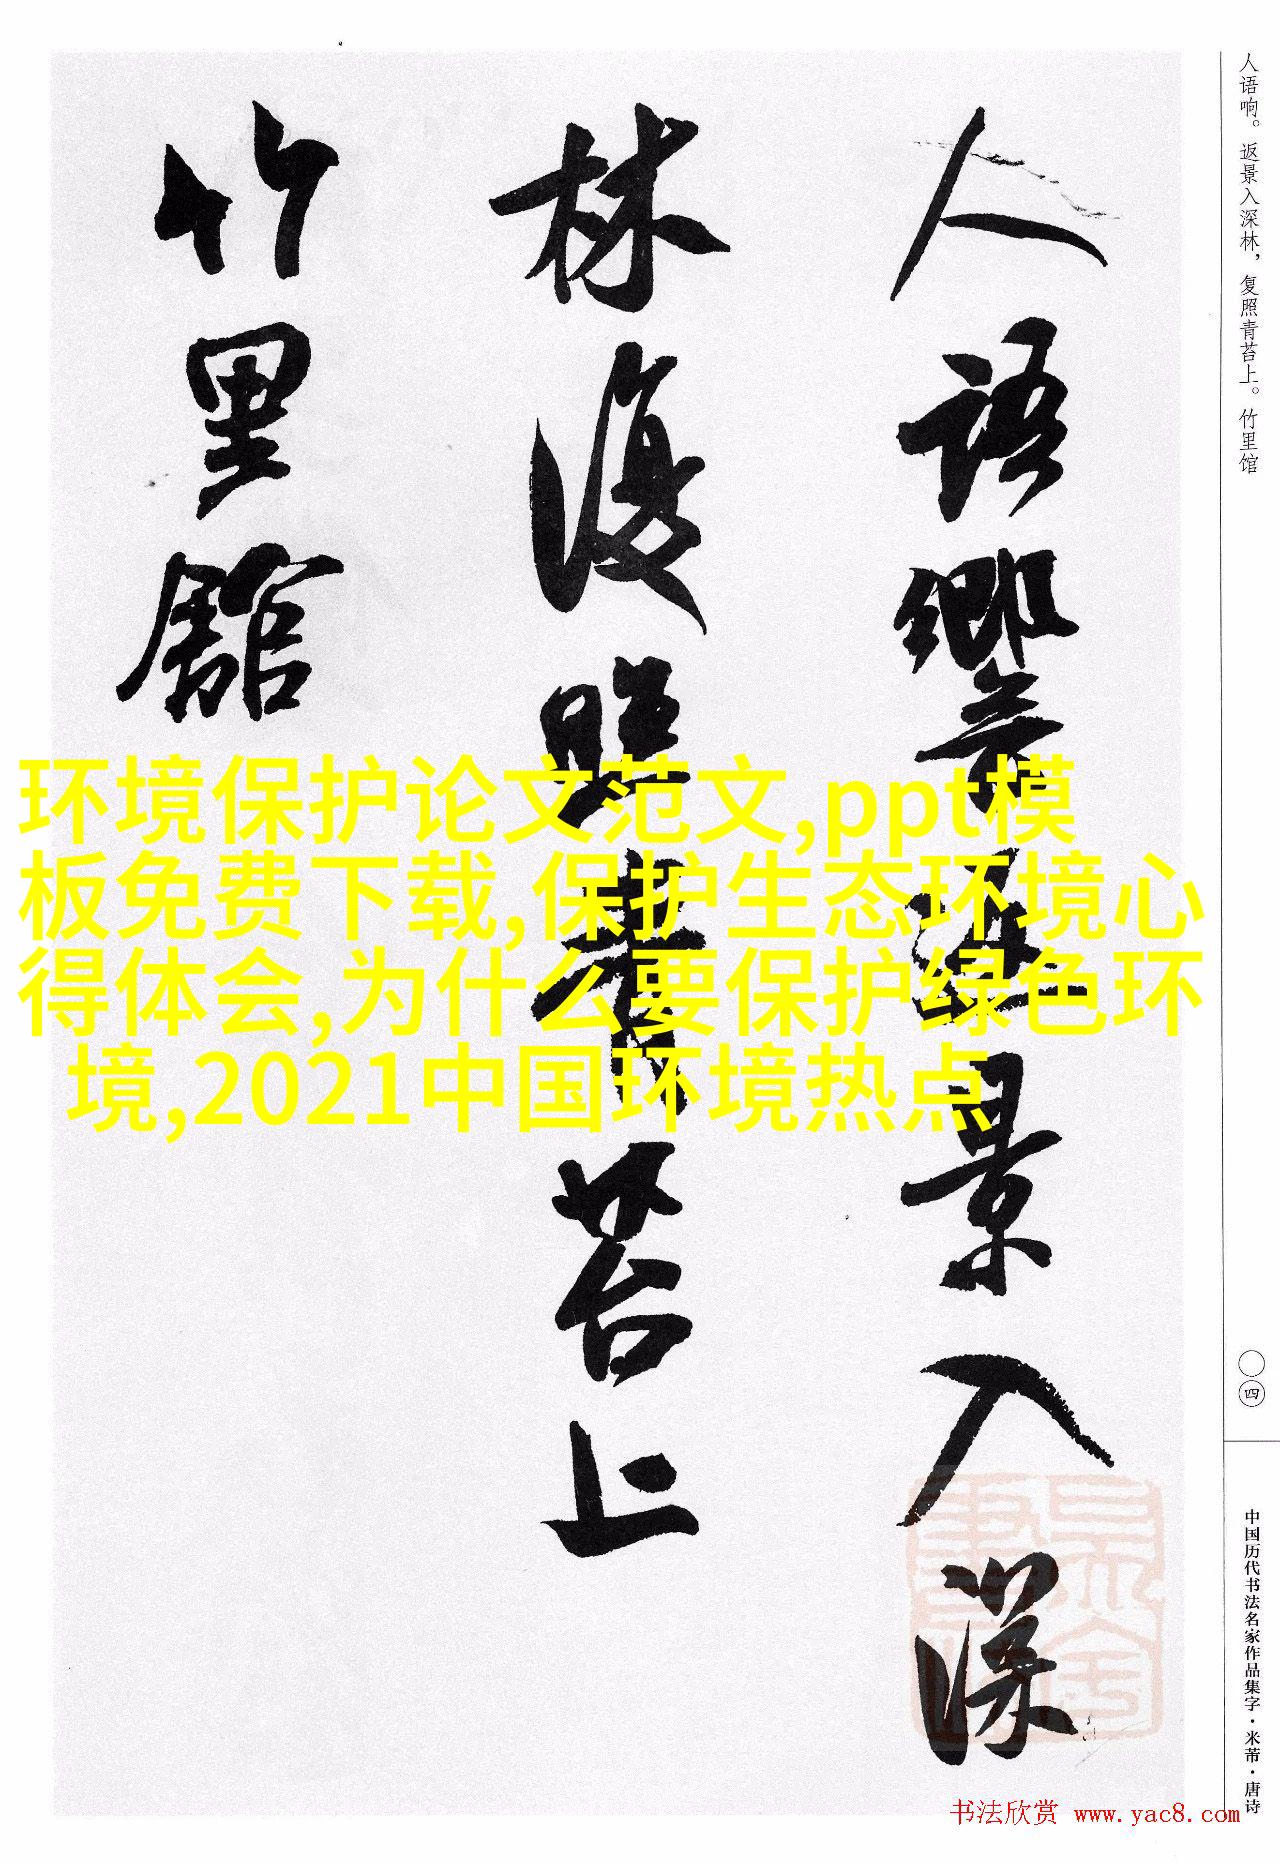 人语响。返景入深林，复照青苔上。竹里馆
人語響返景入深
林復照青苔上
竹里館
环境保护论文范文,ppt模
板免费下载,保护生态环境心
得体会,为什么要保护绿色环
境,2021中国环境热点
〇四
中国历代书法名家作品集字·米芾·唐诗
书法欣赏 www.yac8.com